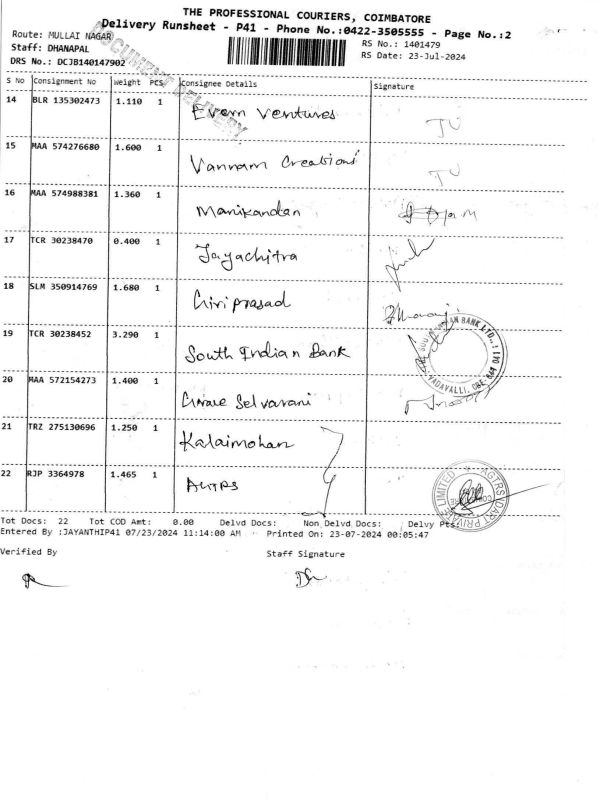 THE PROFESSIONAL COURIERS, COIMBATORE
Delivery Runsheet - P41 - Phone No.:0422-3505555 - Page No.:2
Route: MULLAI NAGAR
RS No.: 1401479
Staff: DHANAPAL
RS Date: 23-Jul-2024
DRS No.: DCJB140147902
DOCUMENT DELIVERY
S No Consignment No Weight PCS Consignee Details Signature
14 BLR 135302473 1.110 1 Evern Ventures
15 MAA 574276680 1.600 1 Vannam Creations
16 MAA 574988381 1.360 1 Manikandan
17 TCR 30238470 0.400 1 Jayachitra
18 SLM 350914769 1.680 1 Giriprasad
19 TCR 30238452 3.290 1 South Indian Bank
20 MAA 572154273 1.400 1 Selvarani
21 TRZ 275130696 1.250 1 Kalaimohan
22 RJP 3364978 1.465 1
Tot Docs: 22 Tot COD Amt: 0.00 Delvd Docs: Non Delvd Docs: Delvy Pts:
Entered By :JAYANTHIP41 07/23/2024 11:14:00 AM Printed On: 23-07-2024 00:05:47
Verified By Staff Signature